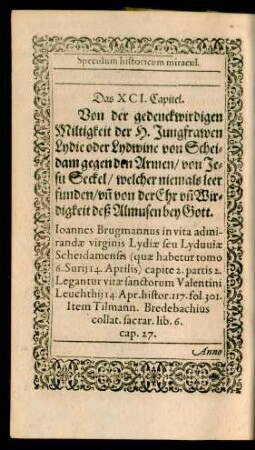 Speculum historicum miracul.
Das XCI. Capitel.
Von der gedenckwirdigen
Miltigkeit der H. Jungfrawen
Lydie oder Lydwine von Schei-
dam gegen den Armen / von Je-
su Seckel / welcher niemals leer
funden / vñ von der Ehr vñ Wir-
digkeit deß Allmusen bey Gott.
Ioannes Brugmannus in vita admi-
randæ virginis Lydiæ seu Lyduuiæ
Scheidamensis (quæ habetur tomo
6. Surij 14. Aprilis) capite 2. partis 2.
Legantur vitæ sanctorum Valentini
Leuchthij 14 Apr. histor. 117. fol. 301.
Item Tilmann. Bredebachius
collat. sacrar. lib. 6.
cap. 27.
Anno